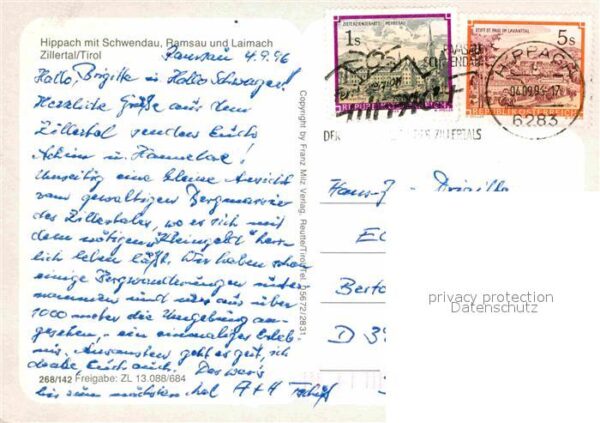 Hippach mit Schwendau, Ramsau und Laimach
Zillertal/Tirol
Ramsau 4.9.96
Hallo, Brigitte u Hallo Schwager!
Herzliche Grüße aus dem
Zillertal senden Euch
Achim u. Hannelore!
Umseitig eine kleine Ansicht
vom gewaltigen Bergmassiv
des Zillertales, wo es sich mit
dem nötigen "Kleingeld" herr-
lich leben läßt. Wir haben schon
einige Bergwanderungen unter-
nommen und uns aus über
1000 meter die Umgebung an-
gesehen, ein einmaliges Erleb-
nis. Ansonsten geht es gut, ich
Euch auch. Das wär's
bis zum nächsten mal A+H
268/142 Freigabe: ZL 13.088/684
Copyright by Franz Milz Verlag, Reutte/Tirol, Tel. 05672/2831
1s
5s
STIFT ST. PAUL IM LAVANTTAL
REPUBLIK ÖSTERREICH
HIPPACH
04.09.96-17
6283
DER
DES ZILLERTALS
Brigitte
D
privacy protection
Datenschutz